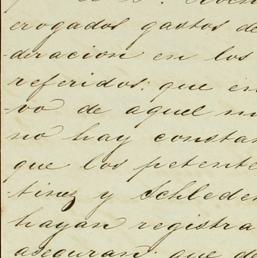 erogados gastos de
deracion en los
referidos. que en
vo de aquel m
no hay constan
que los petente
tinez y Schleden
hayan registra
aseguran que de